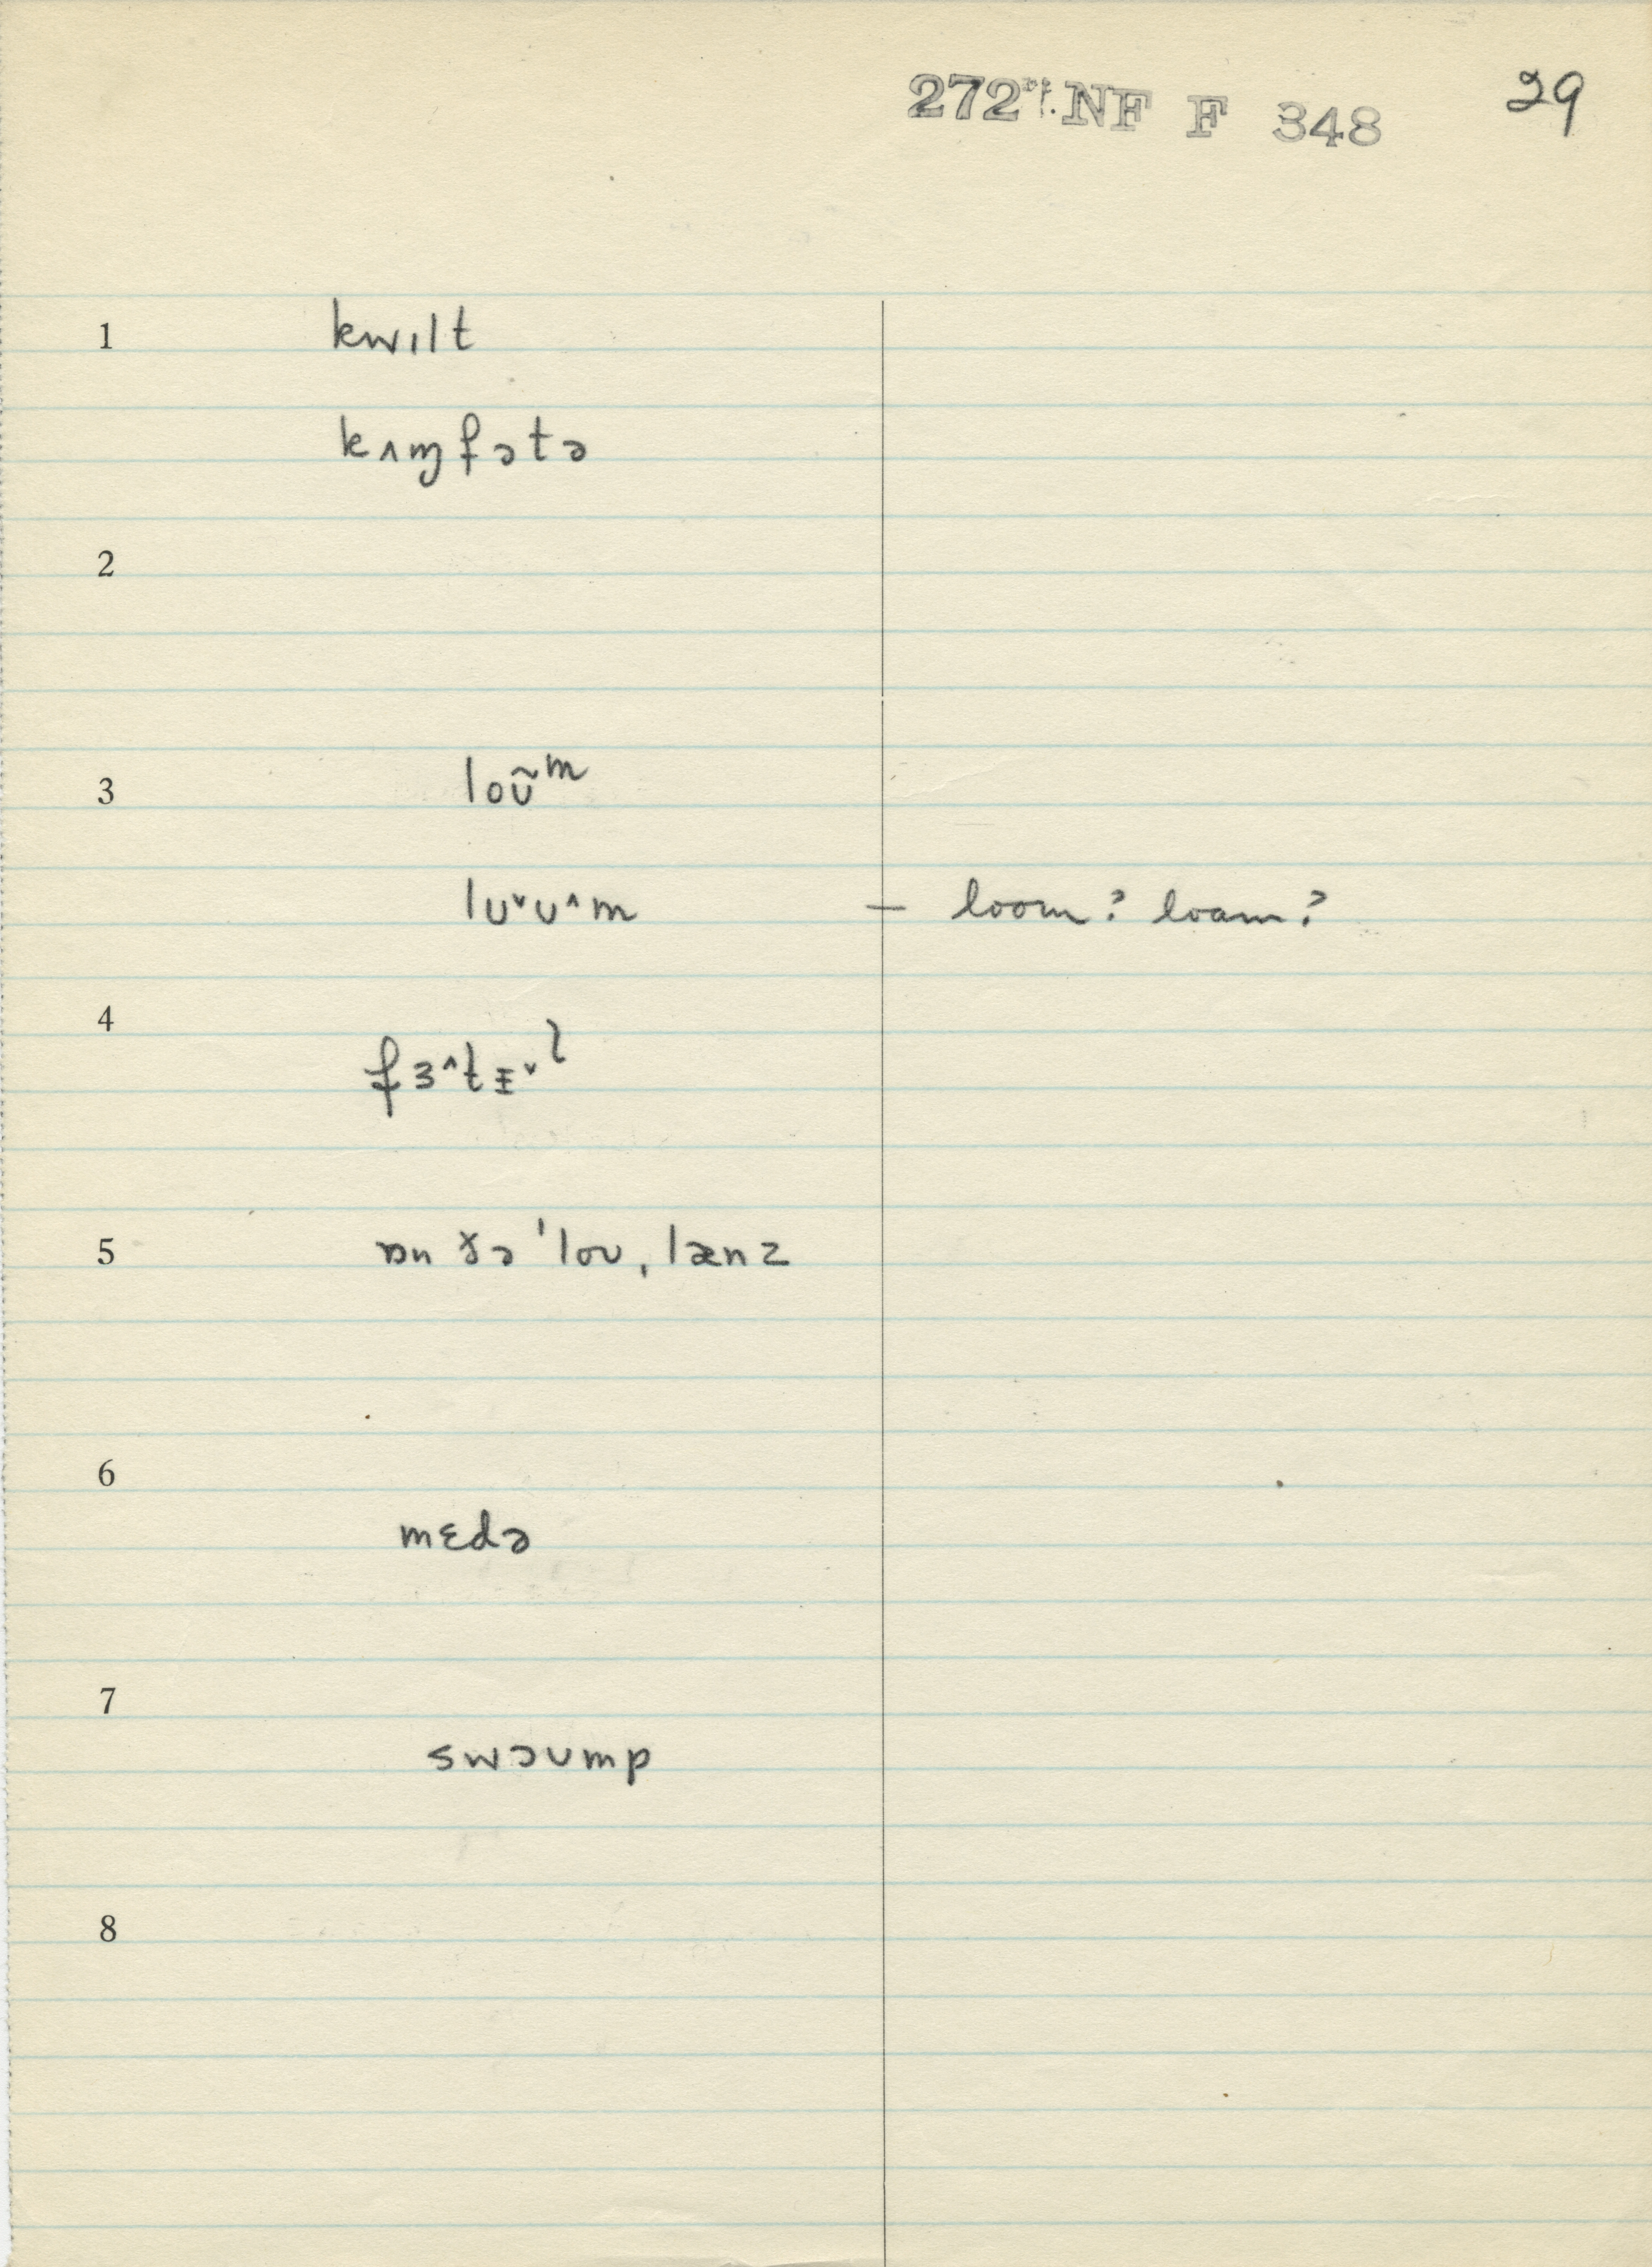 272 NF F 348 29
1 kwɪlt
kʌɱfətə
2
3 loʊ̃ᵐ
lʊ˅ʊ˄m — loom? loam?
4 fɜ˄tɪ˅l
5 ɒn ðə ˈloʊˌlænz
6
mɛdə
7
swɔʊmp
8